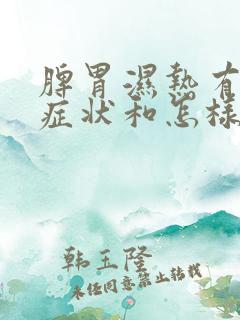 脾胃濕熱有
症狀和怎樣
韩玉隆
未经同意禁止转载